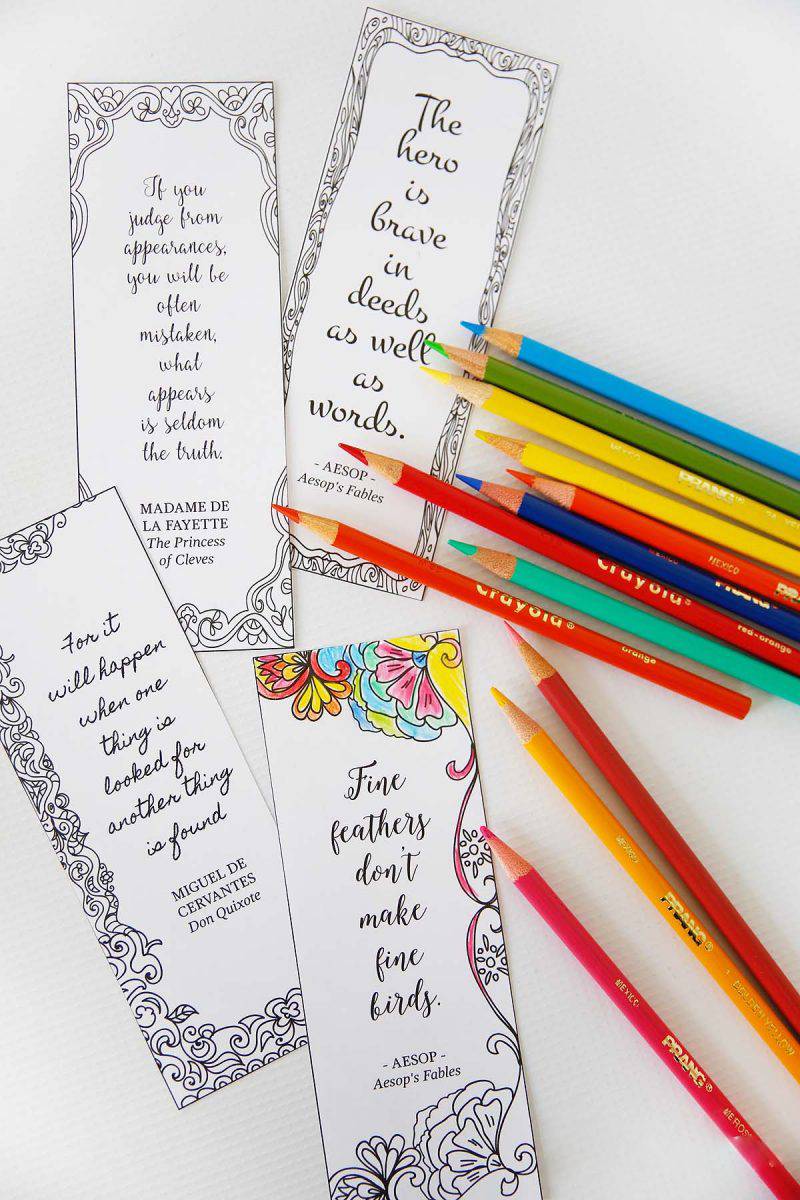 If you
judge from
appearances,
you will be
often
mistaken,
what
appears
is seldom
the truth.
MADAME DE
LA FAYETTE
The Princess
of Cleves
The
hero
is
brave
in
deeds
as well
as
words.
- AESOP -
Aesop's Fables
For it
will happen
when one
thing is
looked for
another thing
is found
MIGUEL DE
CERVANTES
Don Quixote
Fine
feathers
don't
make
fine
birds.
- AESOP -
Aesop's Fables
MEXICO
PRANG®
MEXICO
MEXICO
PRANG
Crayola®
red-orange
Crayola®
orange
MEXICO
PRANG®
GOLDEN YELLOW
MEXICO
PRANG®